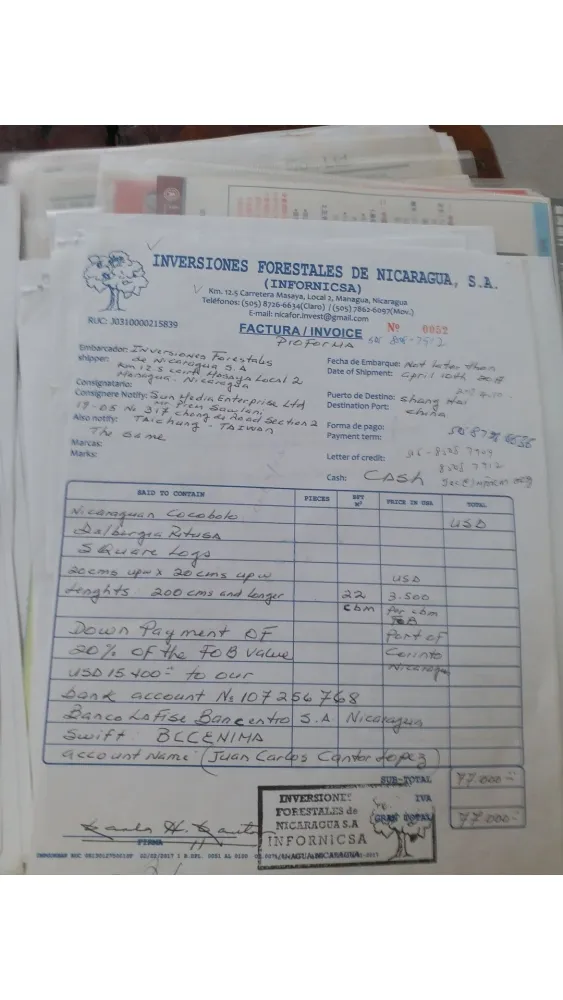 INVERSIONES FORESTALES DE NICARAGUA, S.A.
(INFORNICSA)
Km. 12.5 Carretera Masaya, Local 2, Managua, Nicaragua
Teléfonos: (505) 8726-6634(Claro) / (505) 7862-6097(Mov.)
E-mail: nicafor.invest@gmail.com
RUC: J0310000215839
FACTURA / INVOICE
Nº 0052
Proforma
505 8505-7912
Embarcador: Inversiones Forestales
shipper: de Nicaragua S.A
Km 12.5 carret Masaya Local 2
Managua. Nicaragua
Fecha de Embarque: Not later than
Date of Shipment: April 10th
Consignatario:
Consignere Notify: Sun Media Enterprise Ltd
19-05 No 317 Chong de Road Section 2
Also notify: TAichung - TAIWAN
The same
Puerto de Destino: Shang Hai
Destination Port: China
Forma de pago:
Payment term:
Marcas:
Marks:
Letter of credit:
8505 7912
Cash: CASH
SAID TO CONTAIN PIECES BFT M³ PRICE IN US$ TOTAL
Nicaraguan Cocobolo USD
Dalbergia Retusa
Square Logs
20cms upw x 20 cms upw USD
Lenghts: 200 cms and longer 22 3.500
cbm Per cbm
FOB
Down Payment OF Port of
20% of the FOB value Corinto
Nicaragua
USD 15.400 to our
bank account No 107256768
Banco LaFise Bancentro S.A Nicaragua
Swift: BCCENIMA
account Name: (Juan Carlos Cantor Lopez)
SUB-TOTAL 77.000
IVA
GRAN TOTAL 77.000
INVERSIONES
FORESTALES de
NICARAGUA S.A
INFORNICSA
MANAGUA, NICARAGUA
FIRMA